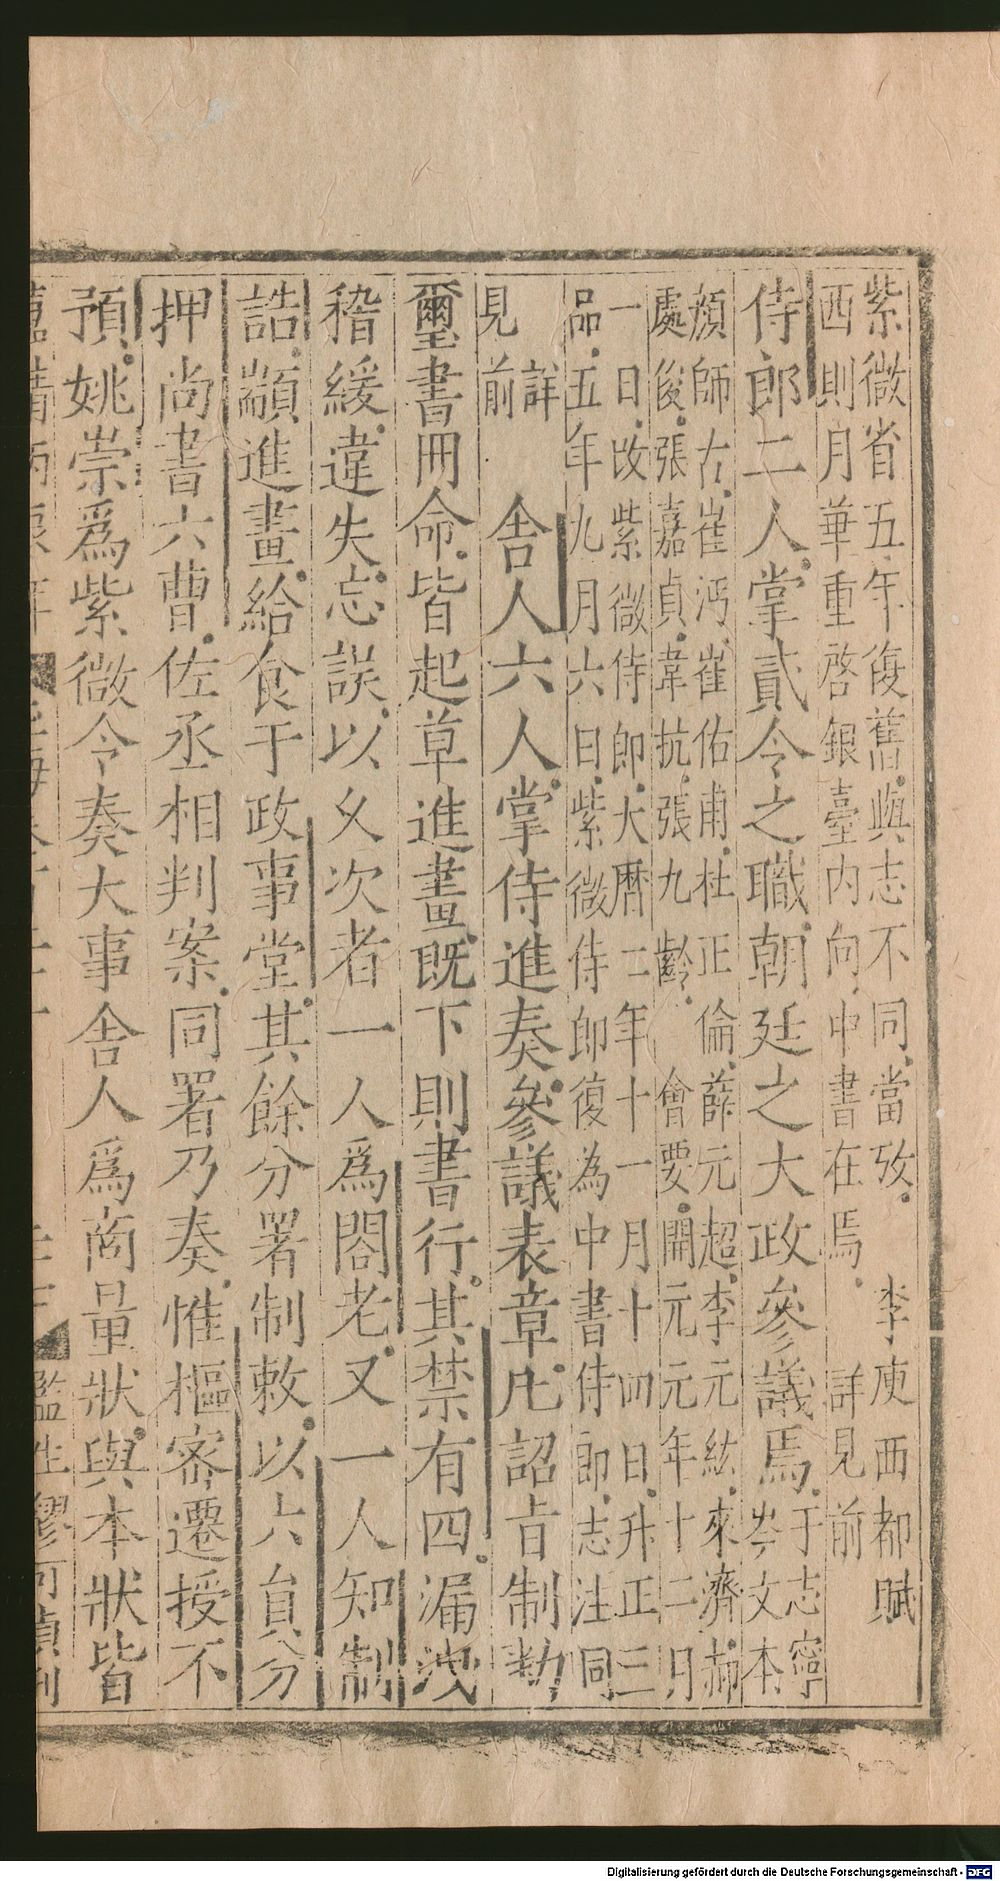 紫微省五年復舊與志不同當攷　李庾西都賦
西則月華重啓銀臺内向中書在焉　詳見前
侍郎二人掌貳令之職朝廷之大政參議焉于志寧
岑文本
顔師古崔沔崔佑甫杜正倫薛元超李元紘來濟郝
處俊張嘉貞韋抗張九齡　會要開元元年十二月
一日改紫微侍郎大曆二年十一月十四日升正三
品五年九月六日紫微侍郎復為中書侍郎志注同
詳
見前　舍人六人掌侍進奏參議表章凡詔旨制勑
璽書冊命皆起草進畫既下則書行其禁有四漏洩
稽緩違失忘誤以久次者一人爲閤老又一人知制
誥顓進畫給食于政事堂其餘分署制敕以六員分
押尚書六曹佐丞相判案同署乃奏惟樞密遷授不
預姚崇爲紫微令奏大事舍人爲商量狀與本狀皆
監生繆可貞刊
Digitalisierung gefördert durch die Deutsche Forschungsgemeinschaft - DFG